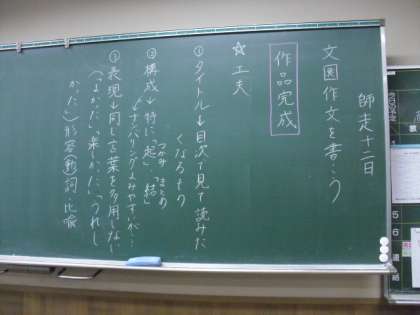 師走十二日
文圍作文を書こう
作品完成
☆工夫
①タイトル→目次で見て読みた
くなるもの
②構成→特に、「起」、「結」
つかみ まとめ
③表現→同じ言葉を多用しない
（「よかった」、「楽しかった」、「うれし
かった」）形容動詞、比喩
5
6
連絡